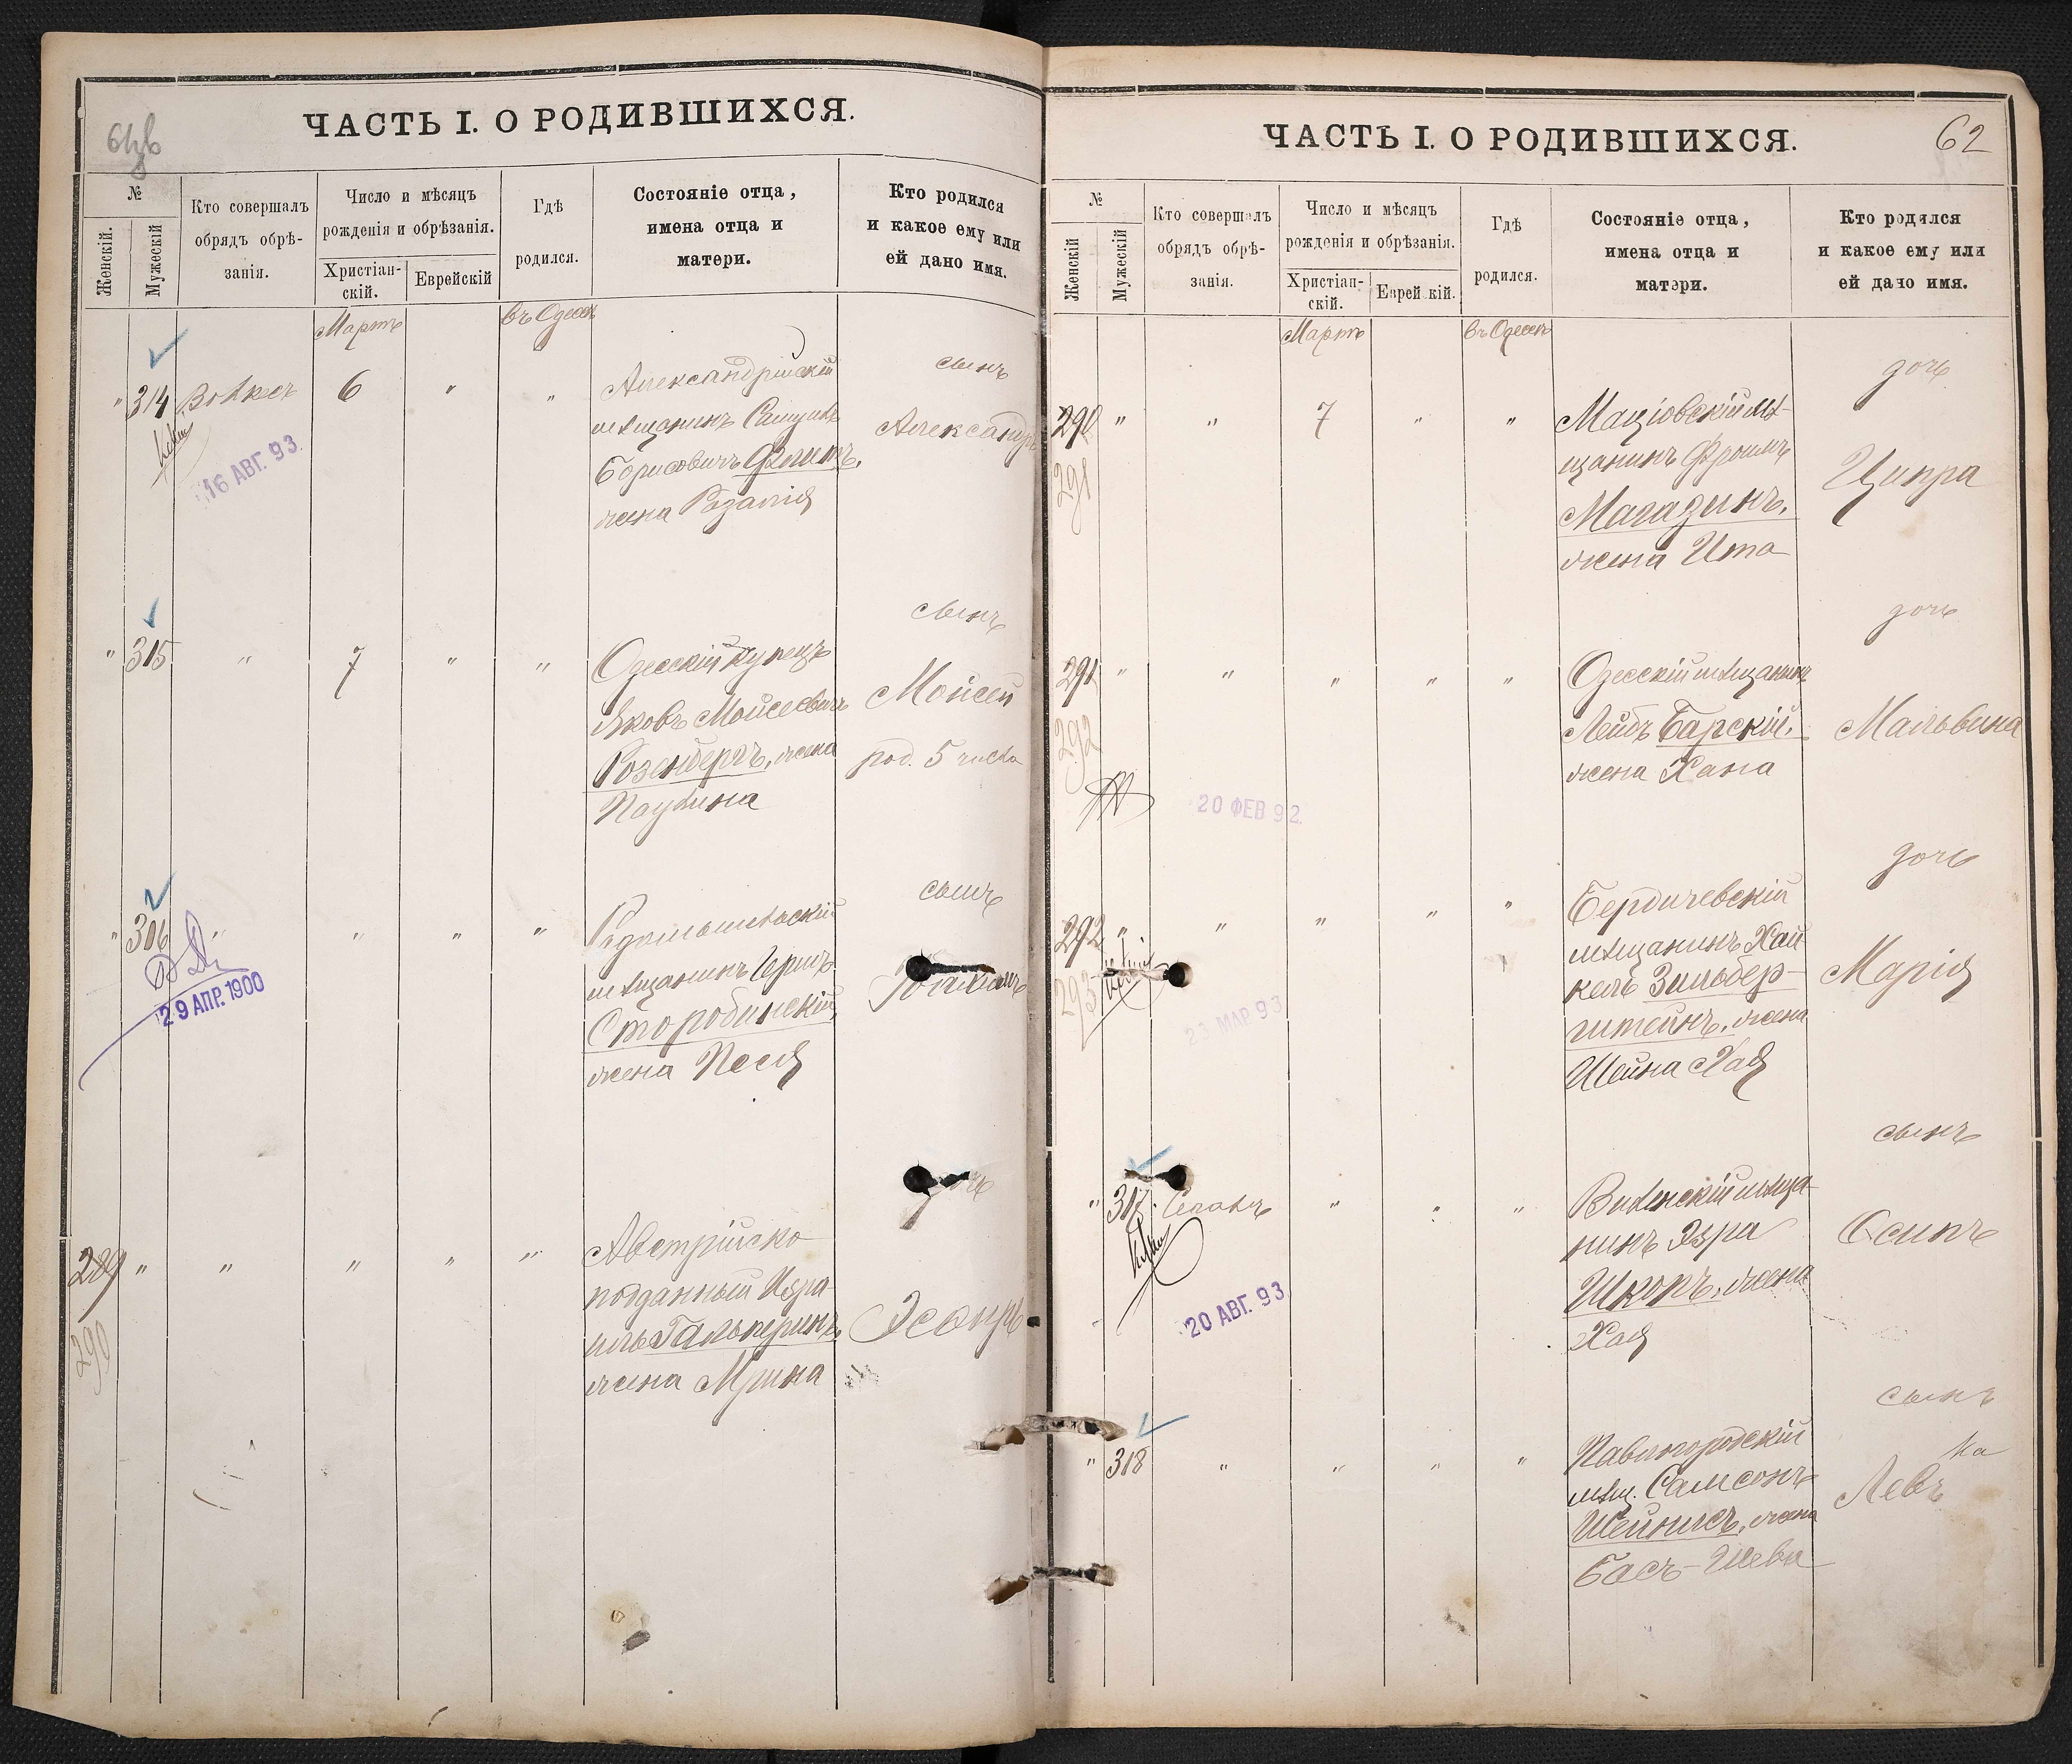 ЧАСТЬ I. О РОДИВШИХСЯ.
№
Женскій.
Мужескій
Кто совершалъ
обрядъ обрѣ-
занія.
Число и мѣсяцъ
рожденія и обрѣзанія.
Христіан-
скій.
Еврейскій
Гдѣ
родился.
Состояніе отца,
имена отца и
матери.
Кто родился
и какое ему или
ей дано имя.
Мартъ
въ Одессѣ
" 314 Волкесъ 6 " "
Александрійскій
мѣщанинъ
Борисовичъ
жена Розалія
сынъ
Александръ
16 АВГ. 93
" 315 " 7 " "
Одесскій купецъ
Яковъ Моисеевичъ
Розенбергъ, жена
Паулина
сынъ
Моисей
род. 5 числа
" 316 " " " "
Радомысльскій
мѣщанинъ Гершъ
Старобинскій,
жена Песя
сынъ
29 АПР. 1900
289 " " " " "
290
Австрійско
подданный Изра-
иль Гальперинъ,
жена
дочь
Эсѳирь
ЧАСТЬ I. О РОДИВШИХСЯ.
62
№
Женскій
Мужескій
Кто совершалъ
обрядъ обрѣ-
занія.
Число и мѣсяцъ
рожденія и обрѣзанія.
Христіан-
скій.
Еврей кій.
Гдѣ
родился.
Состояніе отца,
имена отца и
матери.
Кто родился
и какое ему или
ей дано имя.
Мартъ
въ Одессѣ
290 " " 7 " "
291
Маціовскій мѣ-
щанинъ Фроимъ
Магазинъ,
жена Ита
дочь
Ципра
291 " " " " "
292
Одесскій мѣщанинъ
Лейбъ Барскій,
жена Хана
дочь
Мальвина
20 ФЕВ 92
292 " " " " "
293
Бердичевскій
мѣщанинъ Хай-
кель Зильбер-
штейнъ, жена
Шейна Хая
дочь
Марія
23 МАР 93
" 317 " " "
Виленскій мѣща-
нинъ Эзра
Шкоръ, жена
Хая
сынъ
Осипъ
20 АВГ. 93
" 318 " " " "
Павлогородскій
мѣщ. Самсонъ
Шейнисъ, жена
Бася-Шева
сынъ
Левъ